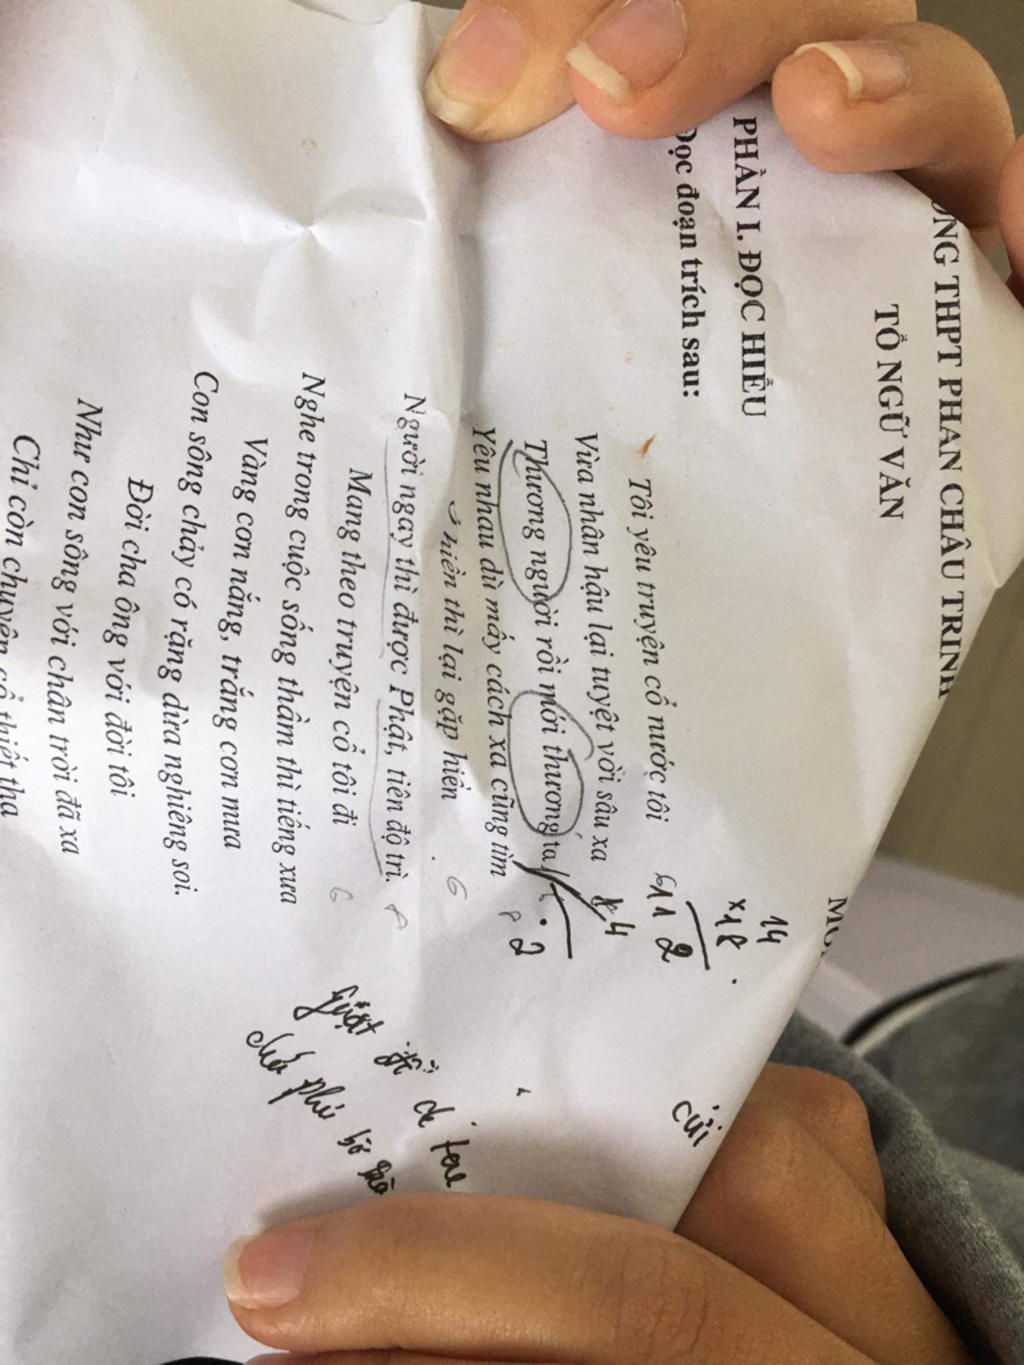 ỜNG THPT PHAN CHÂU TRINH
TỔ NGỮ VĂN
PHẦN I. ĐỌC HIỂU
Đọc đoạn trích sau:
Tôi yêu truyện cổ nước tôi
Vừa nhân hậu lại tuyệt vời sâu xa
Thương người rồi mới thương ta
Yêu nhau dù mấy cách xa cũng tìm
hiền thì lại gặp hiền
Người ngay thì được Phật, tiên độ trì.
Mang theo truyện cổ tôi đi
Nghe trong cuộc sống thầm thì tiếng xưa
Vàng cơn nắng, trắng cơn mưa
Con sông chảy có rặng dừa nghiêng soi.
Đời cha ông với đời tôi
Như con sông với chân trời đã xa
Chỉ còn chuyện cổ thiết tha
14
x18
112
4
2
6
8
6
củi